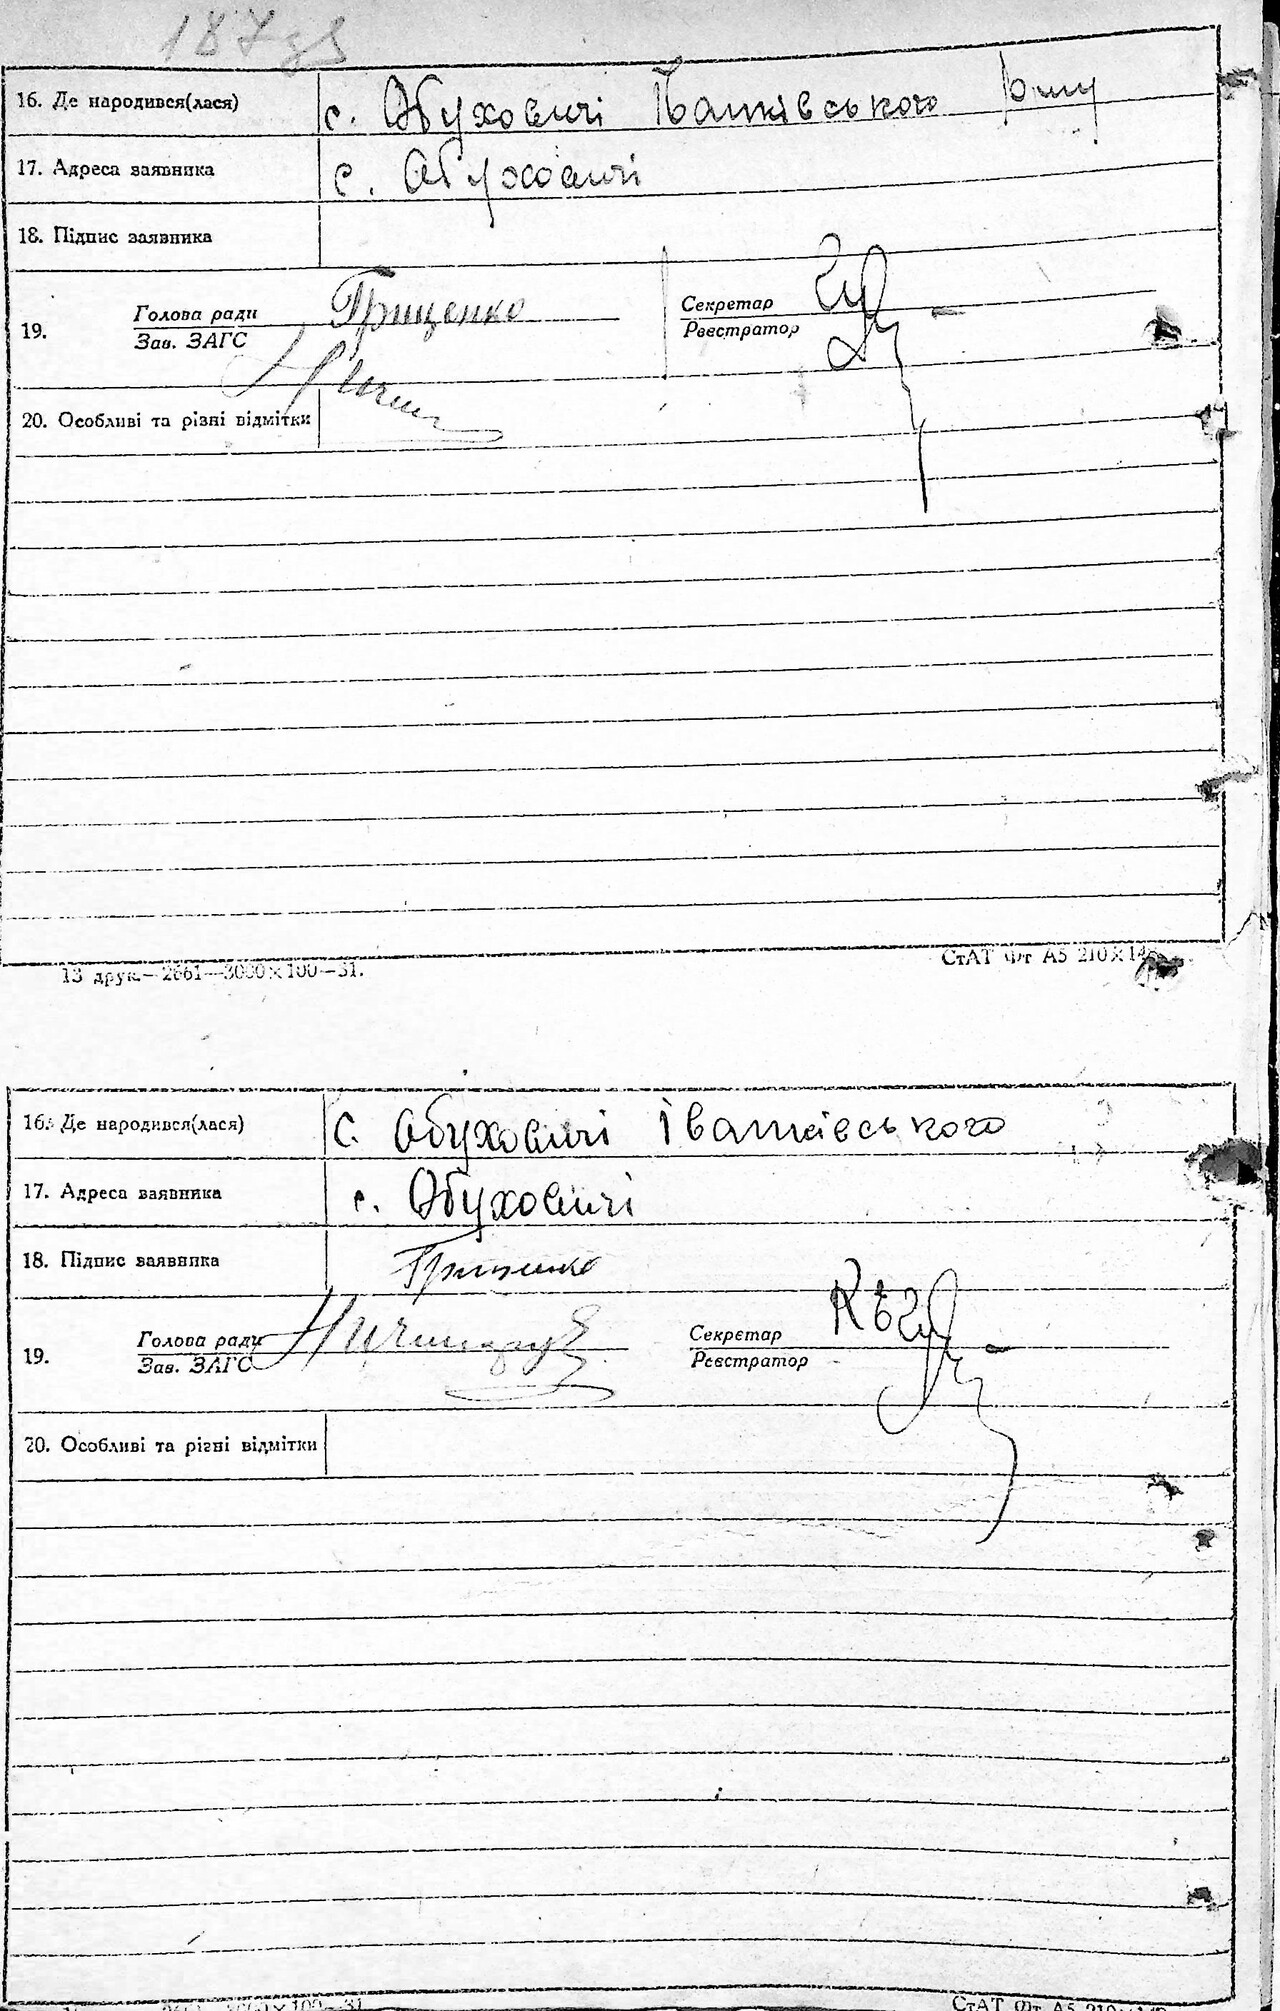 187зв
16. Де народився(лася) с. Обуховичі Іванківського р-ну
17. Адреса заявника с. Обуховичі
18. Підпис заявника
Гриценко
19. Голова ради Секретар
Зав. ЗАГС Реєстратор
20. Особливі та різні відмітки
13 друк.—2661—3000×100—31. СтАТ Фт А5 210×148
16. Де народився(лася) с. Обуховичі Іванківського
17. Адреса заявника с. Обуховичі
18. Підпис заявника Гриценко
19. Голова ради Секретар
Зав. ЗАГС Реєстратор
20. Особливі та різні відмітки
3000×100—31 СтАТ Фт А5 210×148